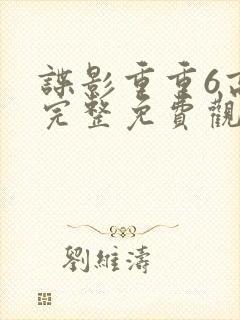 諜影重重6高
完整免費觀
劉維濤